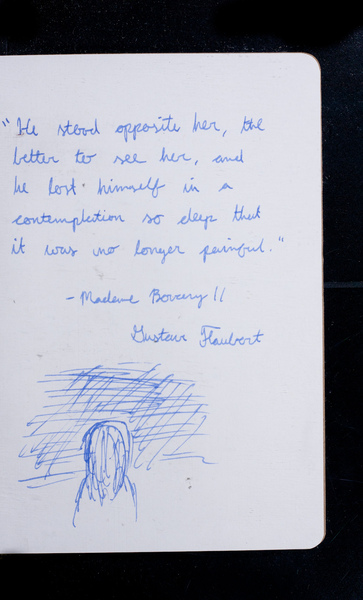 "He stood opposite her, the
better to see her, and
he lost himself in a
contemplation so deep that
it was no longer painful."
- Madame Bovary //
Gustave Flaubert